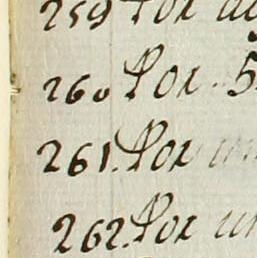 259 Por
260 Por . 5
261. Por un
262. Por un